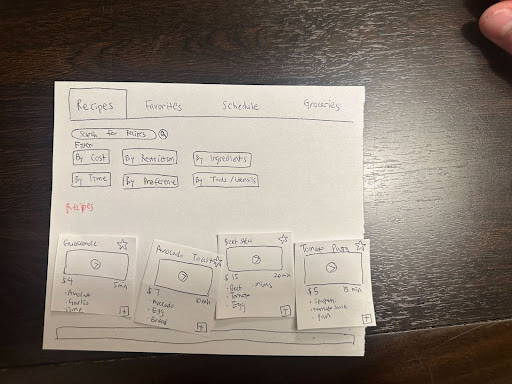 Recipes Favorites Schedule Groceries
Search for Recipes
Filter
By Cost By Restriction By Ingredients
By Time By Preference By Tools/Utensils
Recipes
Guacamole
$4 5min
• Avocado
• Garlic
• Lime
Avocado Toast
$7 10min
• Avocado
• Egg
• Bread
Beef Stew
$15 20min
• Beef
• Tomato
• Egg
Tomato Pasta
$5 15 min
• Spaghetti
• tomato sauce